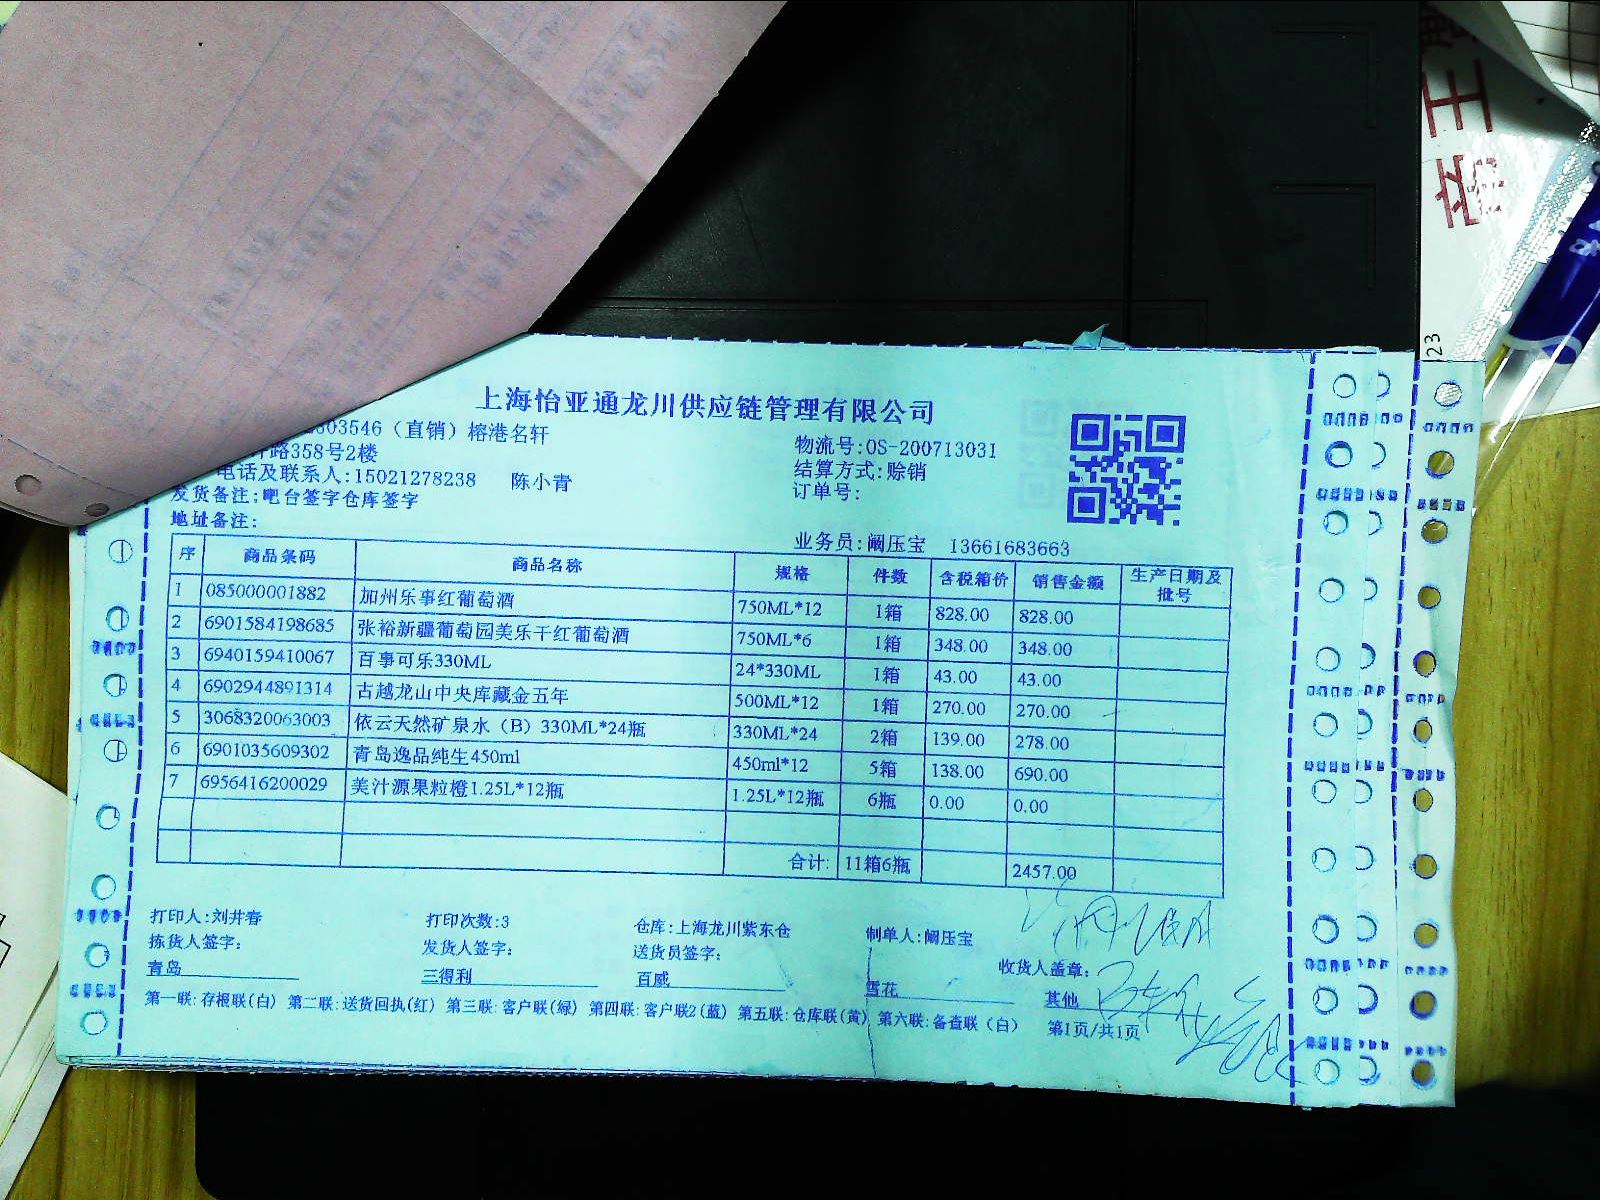 上海怡亚通龙川供应链管理有限公司
03546（直销）榕港名轩
物流号:OS-200713031
路358号2楼
结算方式:赊销
电话及联系人:15021278238 陈小青
订单号:
发货备注:吧台签字仓库签字
地址备注:
业务员:阚压宝 13661683663
序 商品条码 商品名称 规格 件数 含税箱价 销售金额 生产日期及批号
1 085000001882 加州乐事红葡萄酒 750ML*12 1箱 828.00 828.00
2 6901584198685 张裕新疆葡萄园美乐干红葡萄酒 750ML*6 1箱 348.00 348.00
3 6940159410067 百事可乐330ML 24*330ML 1箱 43.00 43.00
4 6902944891314 古越龙山中央库藏金五年 500ML*12 1箱 270.00 270.00
5 3068320063003 依云天然矿泉水（B）330ML*24瓶 330ML*24 2箱 139.00 278.00
6 6901035609302 青岛逸品纯生450ml 450ml*12 5箱 138.00 690.00
7 6956416200029 美汁源果粒橙1.25L*12瓶 1.25L*12瓶 6瓶 0.00 0.00
合计: 11箱6瓶 2457.00
打印人:刘井春 打印次数:3 仓库:上海龙川紫东仓 制单人:阚压宝
拣货人签字: 发货人签字: 送货员签字: 收货人盖章:
青岛 三得利 百威 雪花 其他
第一联:存根联(白) 第二联:送货回执(红) 第三联:客户联(绿) 第四联:客户联2(蓝) 第五联:仓库联(黄) 第六联:备查联（白） 第1页/共1页
帝王
23